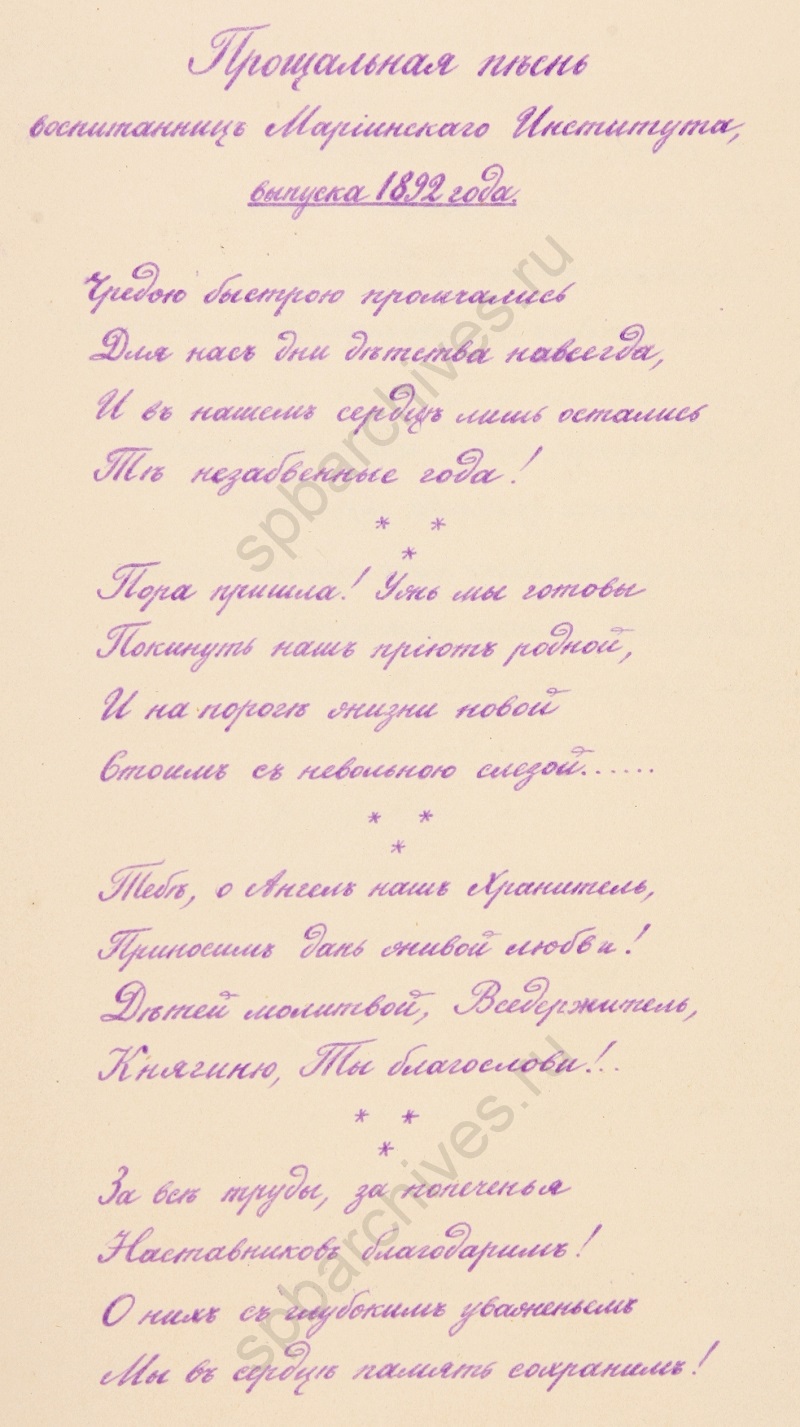 Прощальная пѣснь
воспитанницъ Маріинскаго Института,
выпуска 1892 года.
Чредою быстрою промчались
Для насъ дни дѣтства навсегда,
И въ нашемъ сердцѣ лишь остались
Тѣ незабвенные года!
* *
*
Пора пришла! Ужъ мы готовы
Покинуть нашъ пріютъ родной,
И на порогѣ жизни новой
Стоимъ съ невольною слезой......
* *
*
Тебѣ, о Ангелъ нашъ Хранитель,
Приносимъ дань живой любви!
Дѣтей молитвой, Вседержитель,
Княгиню, Ты благослови!..
* *
*
За всѣ труды, за попеченья
Наставниковъ благодаримъ!
О нихъ съ глубокимъ уваженьемъ
Мы въ сердцѣ память сохранимъ!
spbarchives.ru
spbarchives.ru